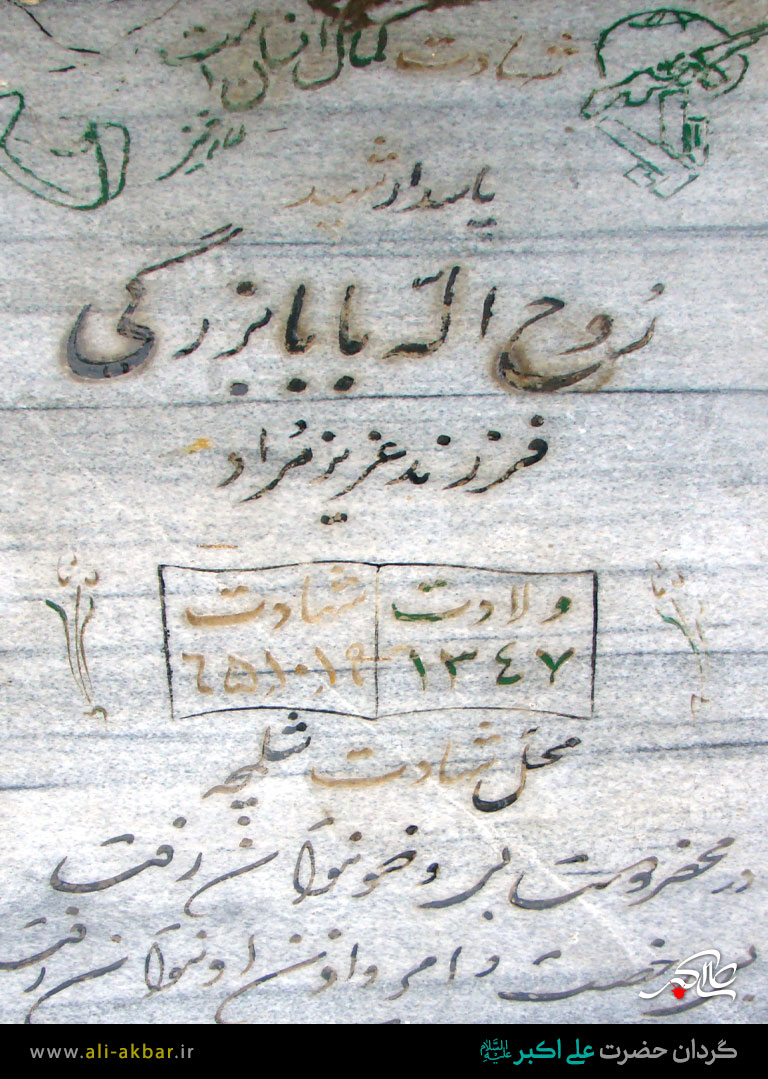 شهادت کمال انسان است
پاسدار شهید
روح اله بابابزرگی
فرزند عزیز مراد
ولادت شهادت
۱۳٤۷ ٦۵٫۱۰٫۱۹
محل شهادت شلمچه
در محضر دوست بی وضو نتوان رفت
بی رخصت و امر و اذن او نتوان رفت
علی اکبر
گردان حضرت علی اکبر علیه السلام
www.ali-akbar.ir